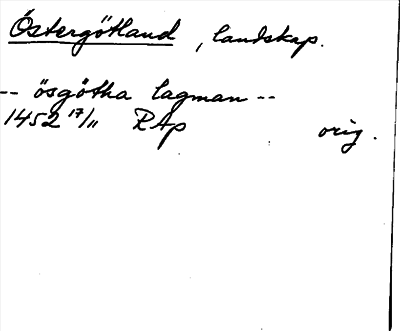 Östergötland, landskap.
-- ösgötha lagman --
1452 17/11 RAp orig.